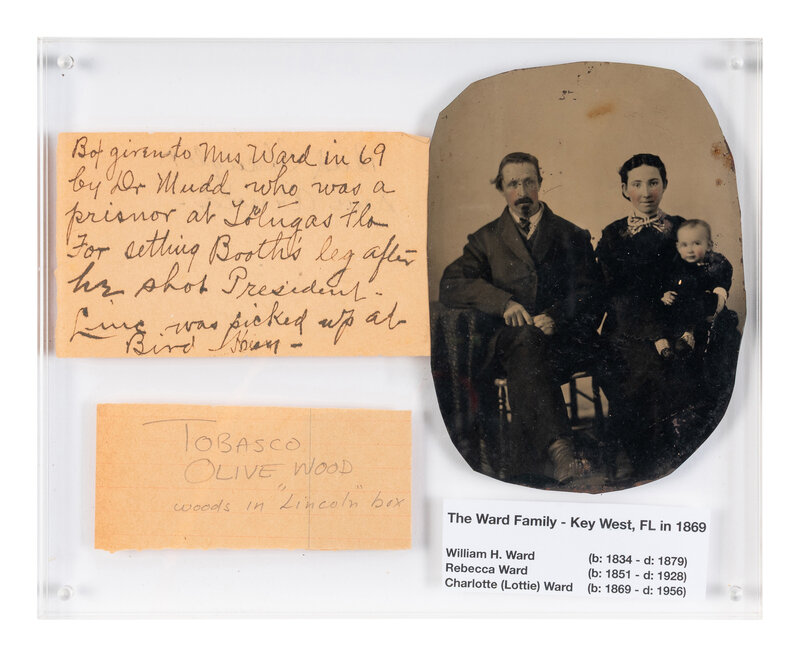 Box given to Mrs Ward in 69
by Dr Mudd who was a
prisnor at Totugas Flo
For setting Booth's leg after
he shot President-
Linc was picked up at
Bird -
TOBASCO
OLIVE WOOD
woods in "Lincoln" box
The Ward Family - Key West, FL in 1869
William H. Ward (b: 1834 - d: 1879)
Rebecca Ward (b: 1851 - d: 1928)
Charlotte (Lottie) Ward (b: 1869 - d: 1956)